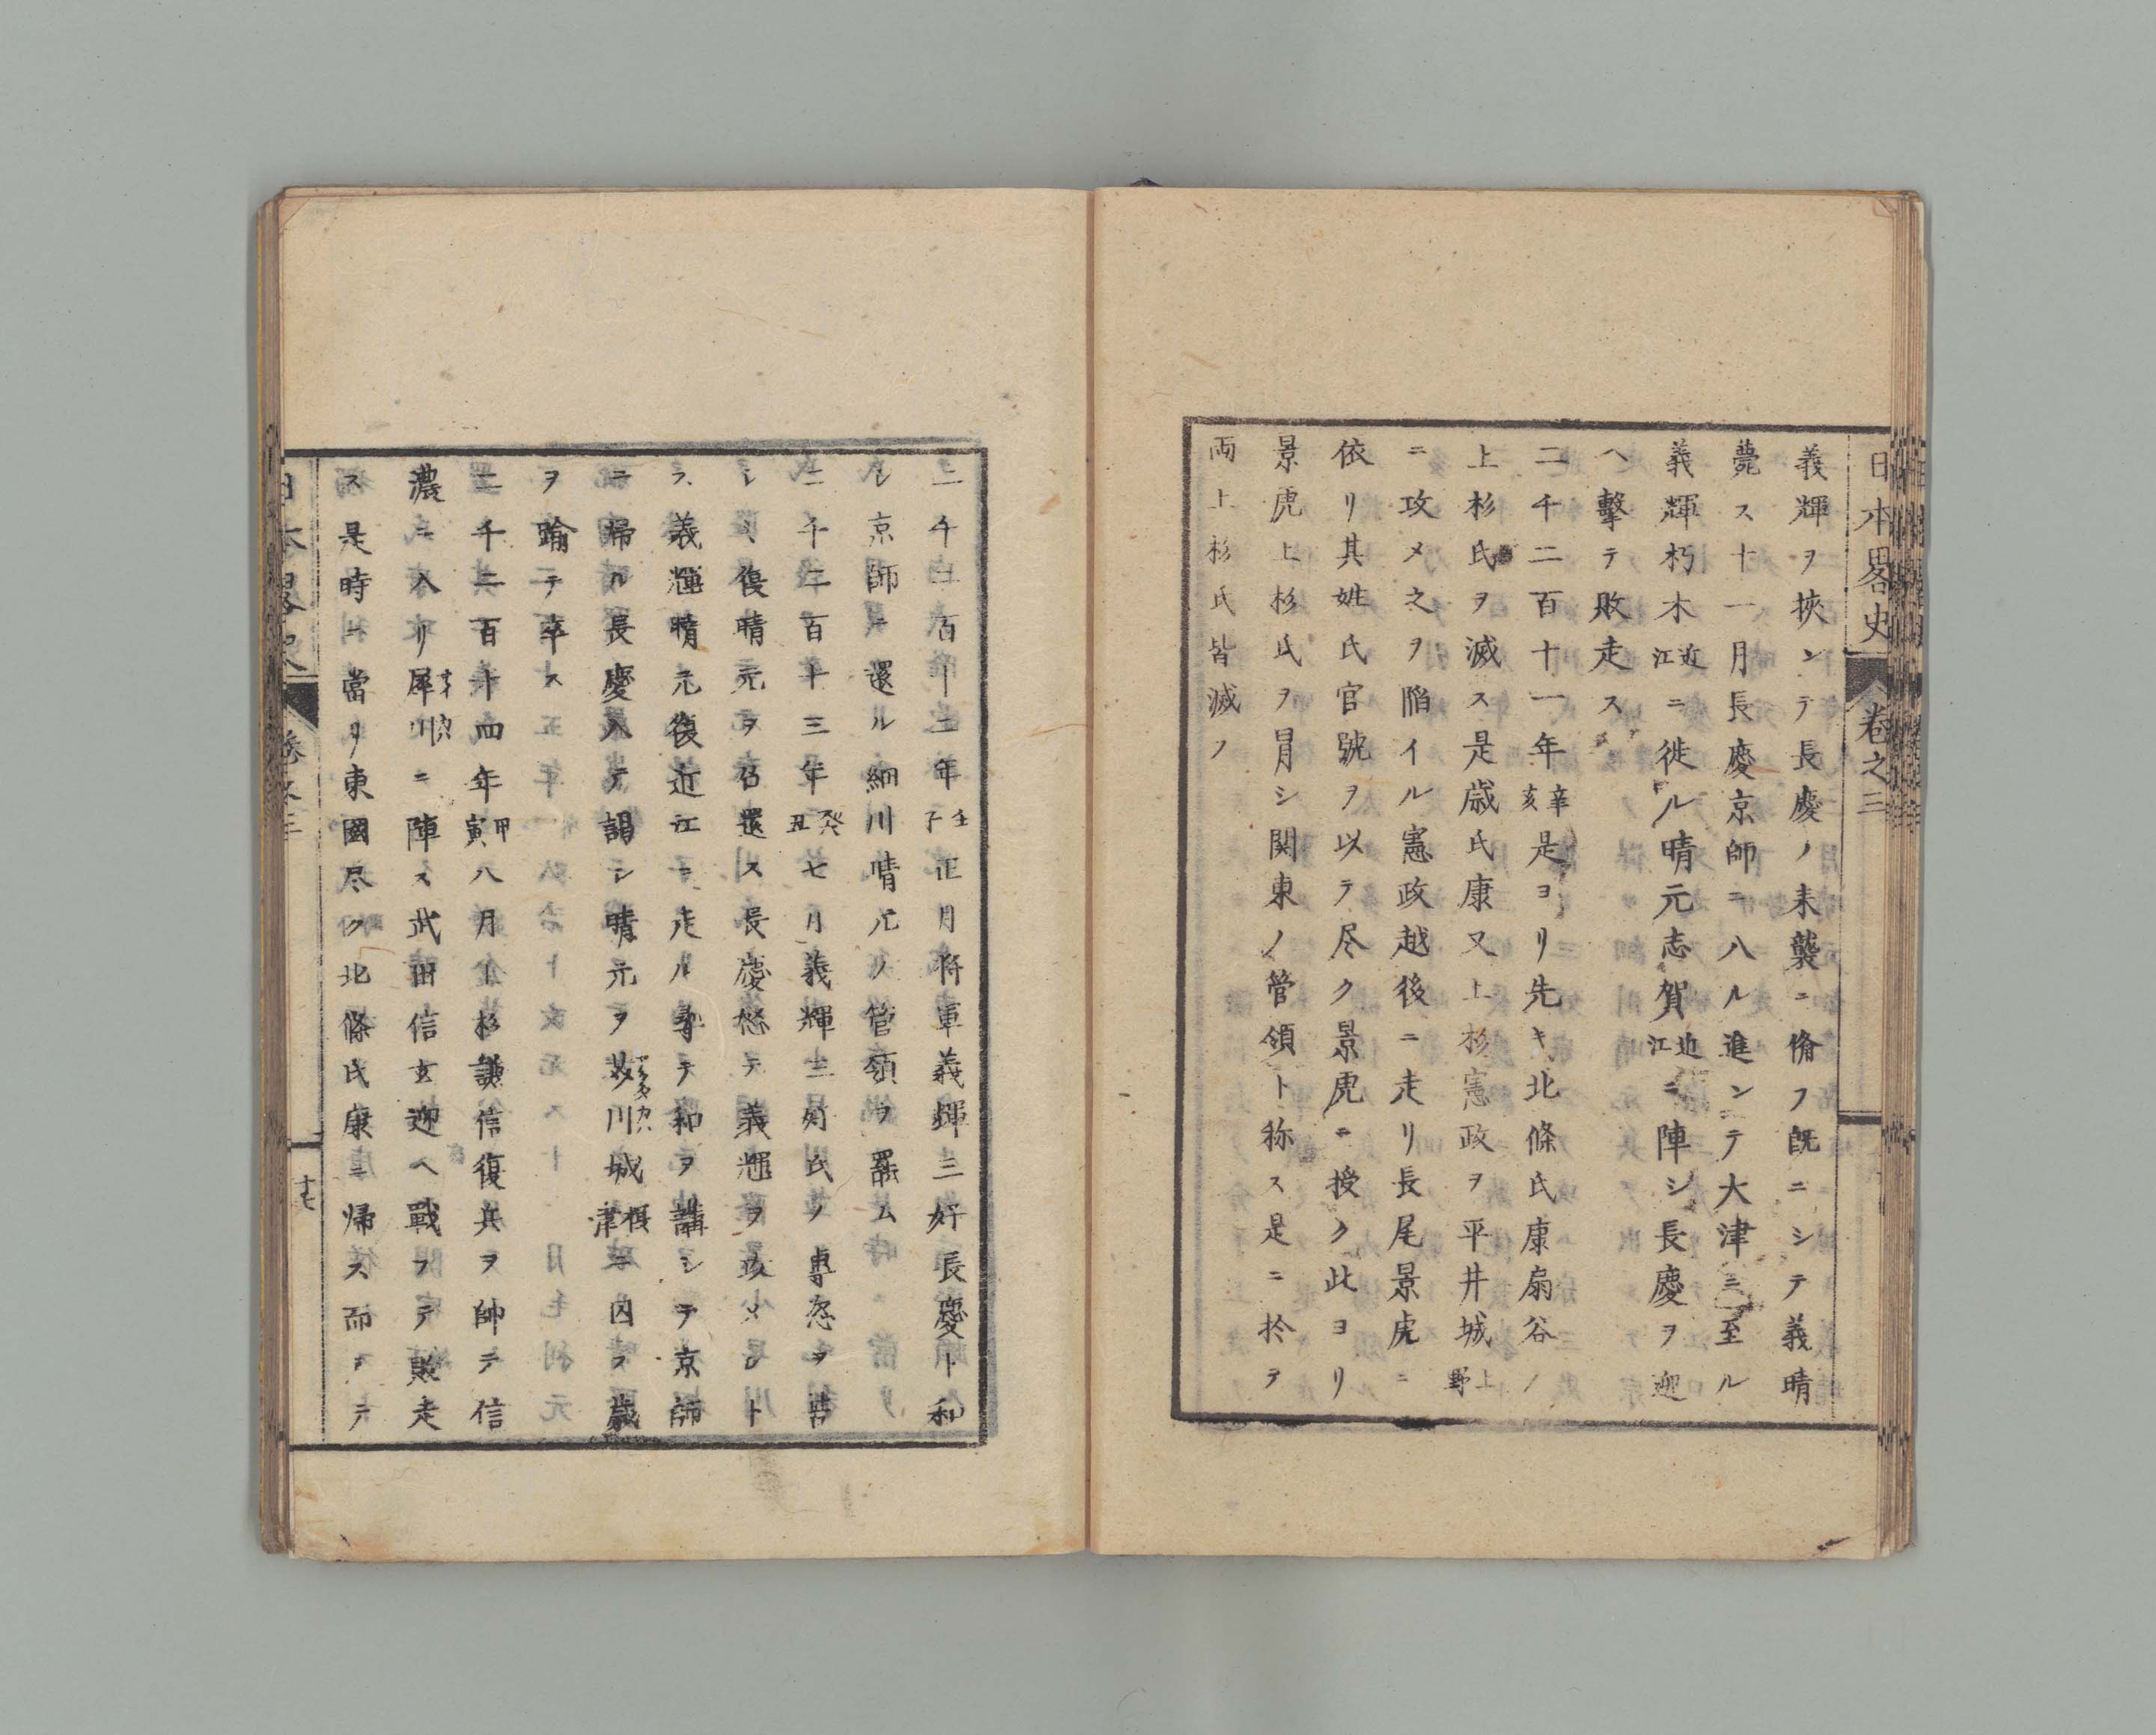 日本畧史 卷之三
義輝ヲ挾ンテ長慶ノ来襲ニ脩フ既ニシテ義晴
薨ス十一月長慶京師ニ入ル進ンテ大津ニ至ル
義輝朽木近江ニ徙ル晴元志賀近江ニ陣シ長慶ヲ迎
ヘ擊テ敗走ス
二千二百十一年辛亥是ヨリ先キ北條氏康扇谷ノ
上杉氏ヲ滅ス是歳氏康又上杉憲政ヲ平井城上野
ニ攻メ之ヲ陷イル憲政越後ニ走リ長尾景虎ニ
依リ其姓氏官號ヲ以テ尽ク景虎ニ授ク此ヨリ
景虎上杉氏ヲ冐シ関東ノ管領ト称ス是ニ於テ
両上杉氏皆滅ノ
二千二百十二年壬子正月将軍義輝三好長慶ト和
シ京師ニ還ル細川晴元ノ管領ヲ罷ム
二千二百十三年癸丑七月義輝三好氏ノ專恣ヲ患
ヒ復晴元ヲ召還ス長慶怒テ義輝ヲ攻メント
ス義輝晴元復近江ニ走ル尋テ和ヲ講シテ京師
ニ帰ル長慶入テ謁シ晴元ヲ芥川城摂津ニ囚フ歳
ヲ踰テ卒ス
二千二百十四年甲寅八月上杉謙信復兵ヲ帥テ信
濃ニ入リ犀川サイカハニ陣ス武田信玄迎ヘ戰フテ敗走
ス是時ニ當リ東國尽ク北條氏康ニ帰ス而シテ
日本畧史 卷之三 廿七